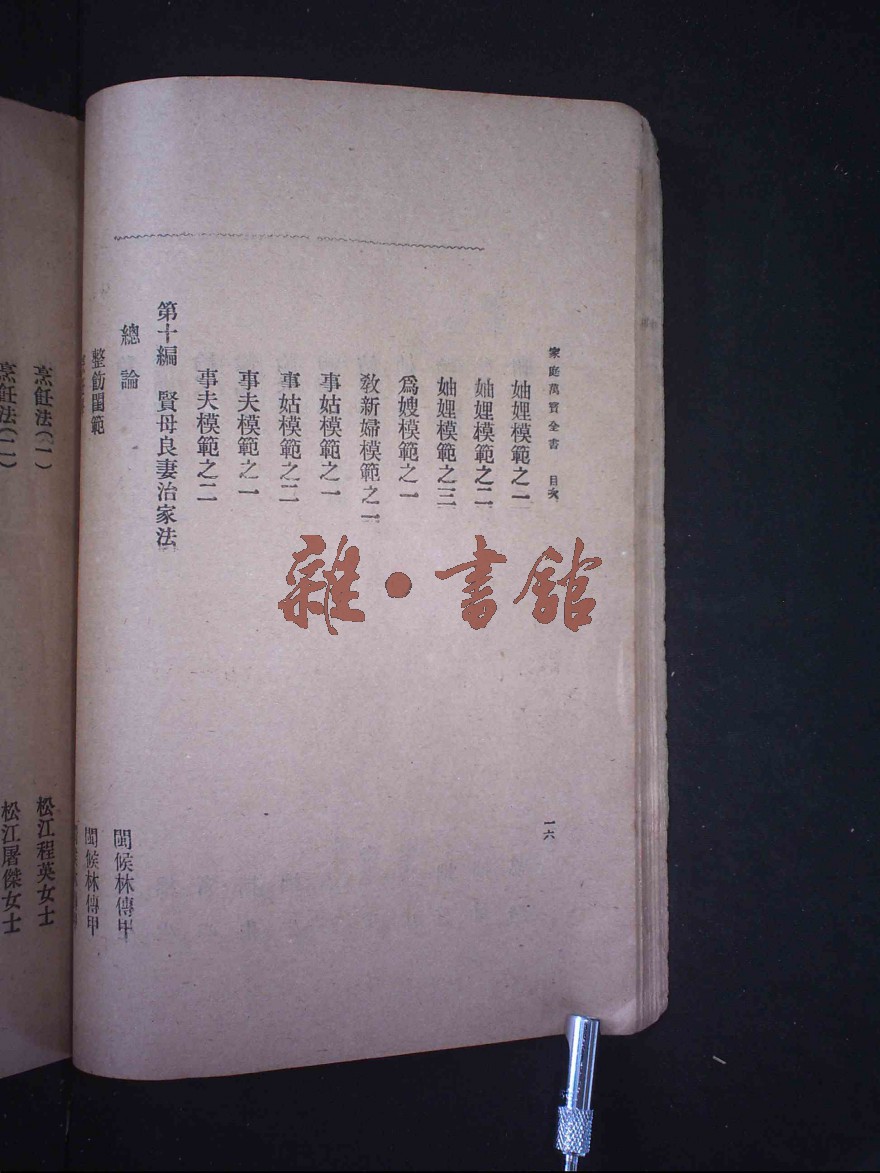 家庭萬寶全書　目次
一六
妯娌模範之一
妯娌模範之二
妯娌模範之三
爲嫂模範之一
教新婦模範之一
事姑模範之一
事姑模範之二
事夫模範之一
事夫模範之二
第十編　賢母良妻治家法
總論　閩侯林傳甲
整飭閨範　閩候林傳甲
烹飪法(一)　松江程英女士
烹飪法(二)　松江屠傑女士
雜·書館